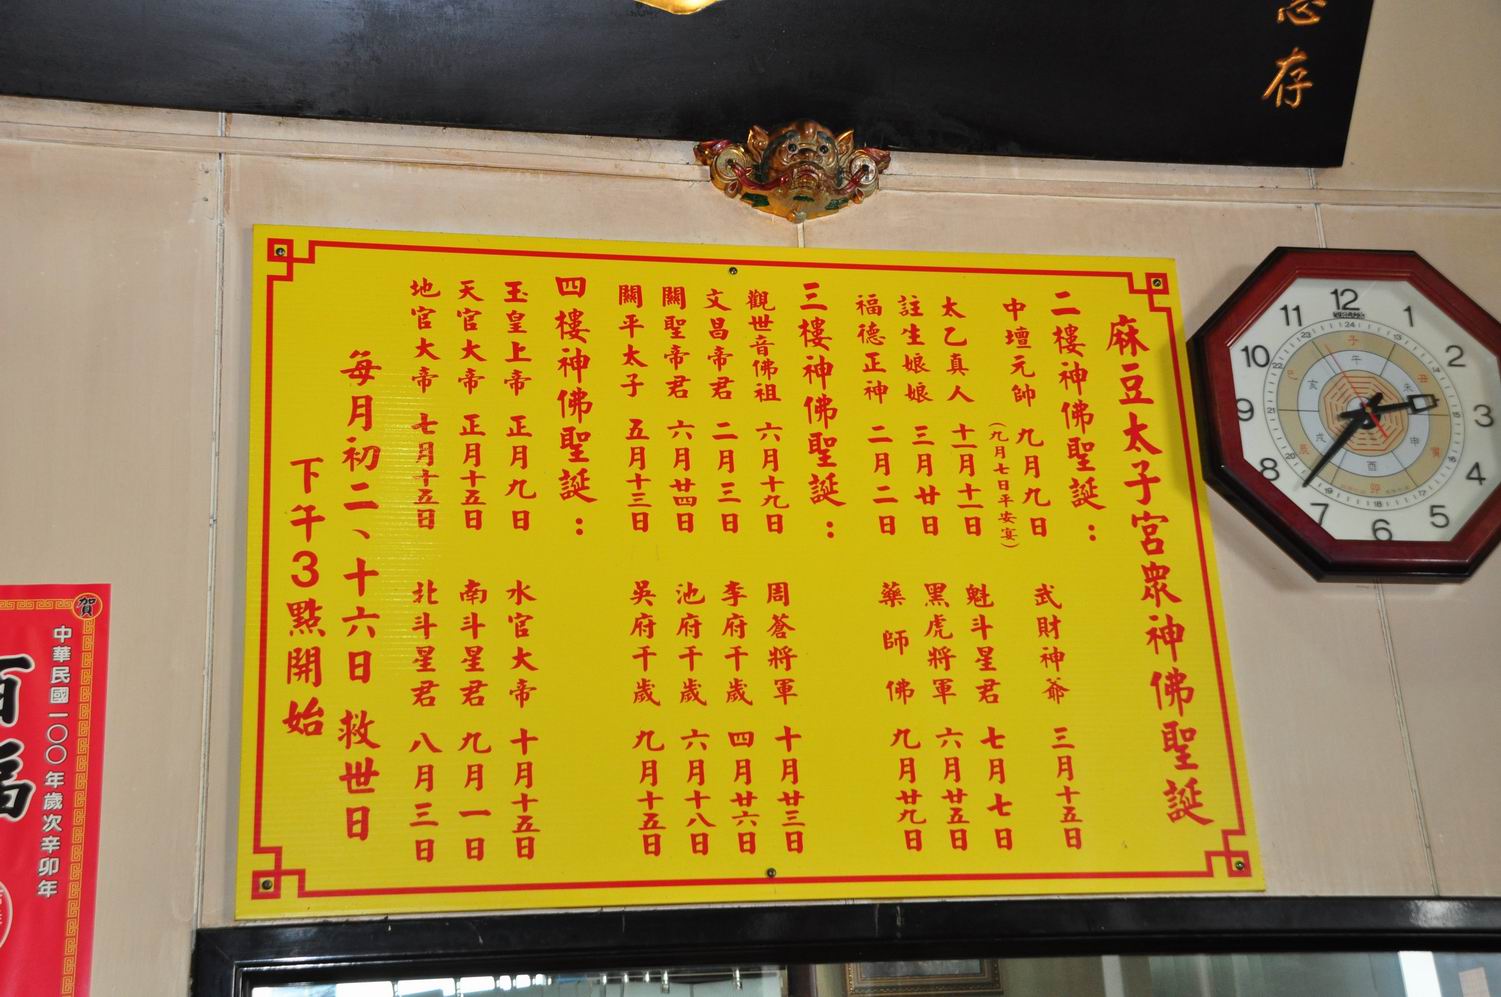 念存
麻豆太子宮眾神佛聖誕
二樓神佛聖誕：
中壇元帥 九月九日
（九月七日平安宴）
武財神爺 三月十五日
太乙真人 十一月十一日
魁斗星君 七月七日
註生娘娘 三月廿日
黑虎將軍 六月廿五日
福德正神 二月二日
藥師佛 九月廿九日
三樓神佛聖誕：
觀世音佛祖 六月十九日
周蒼將軍 十月廿三日
文昌帝君 二月三日
李府千歲 四月廿六日
關聖帝君 六月廿四日
池府千歲 六月十八日
關平太子 五月十三日
吳府千歲 九月十五日
四樓神佛聖誕：
玉皇上帝 正月九日
水官大帝 十月十五日
天官大帝 正月十五日
南斗星君 九月一日
地官大帝 七月十五日
北斗星君 八月三日
每月初二、十六日 救世日
下午3點開始
12
1
2
3
4
5
6
7
8
9
10
11
賀
中華民國一〇〇年歲次辛卯年